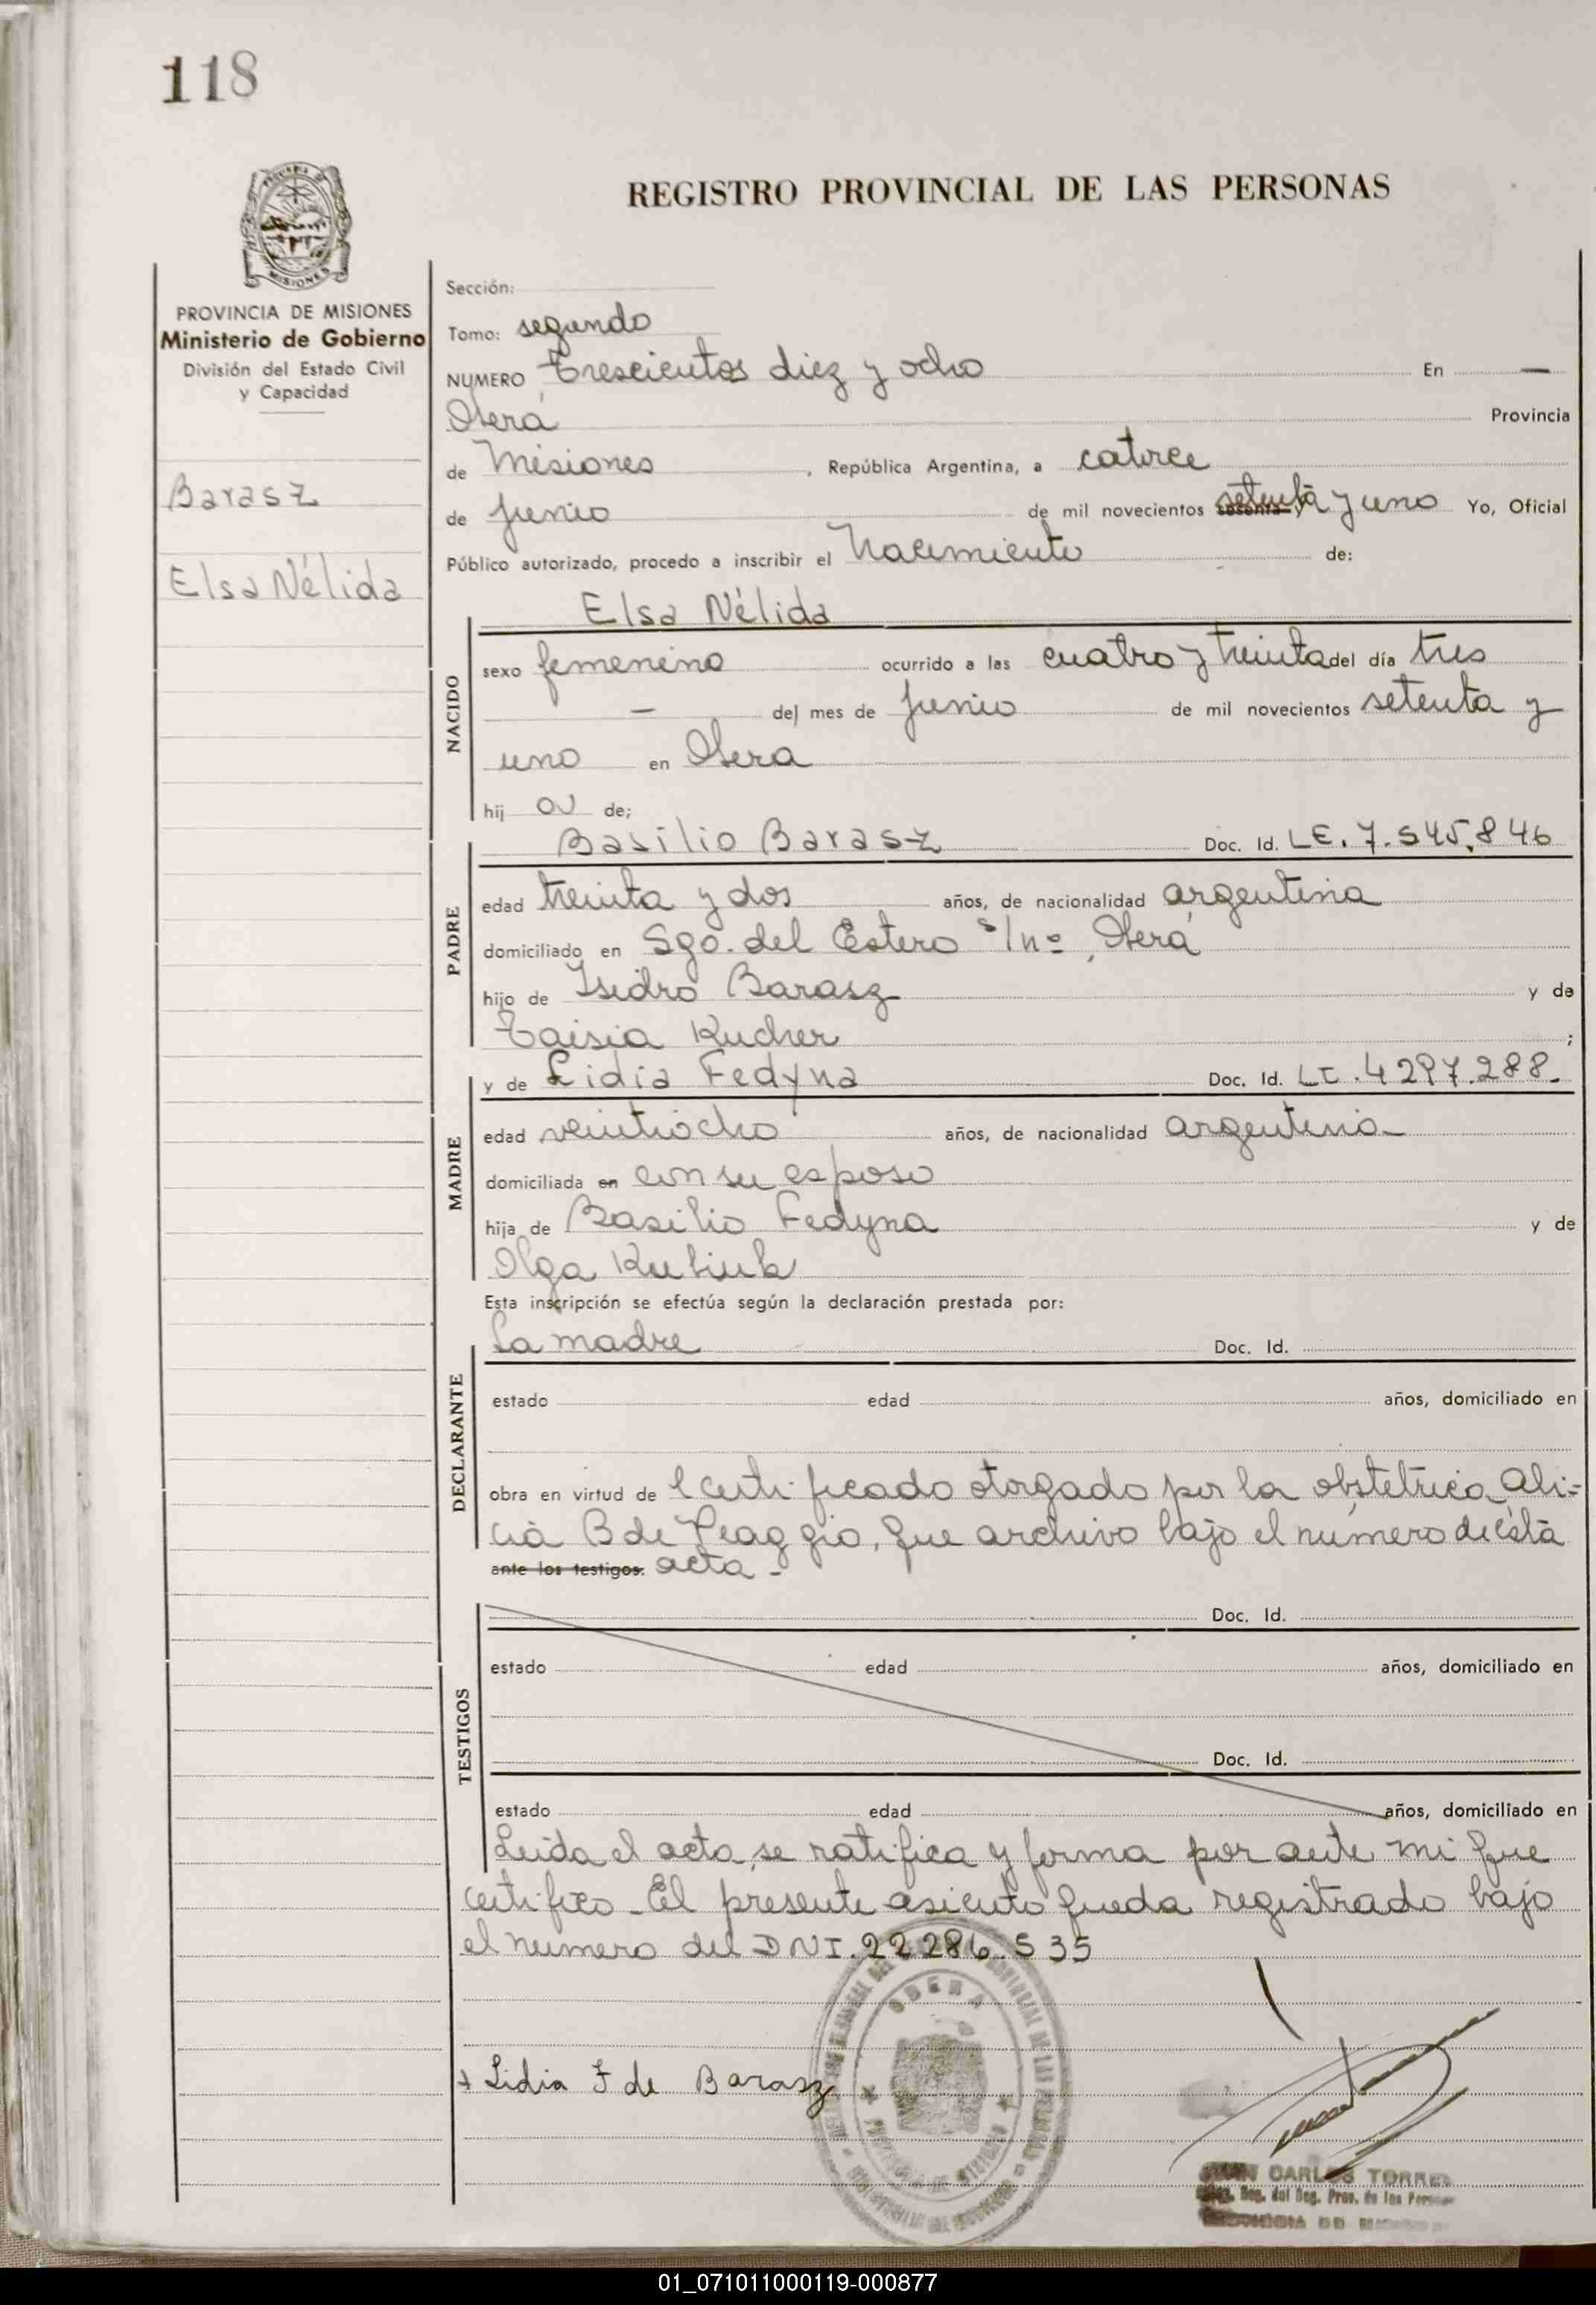 118
MISIONES
REGISTRO PROVINCIAL DE LAS PERSONAS
PROVINCIA DE MISIONES
Ministerio de Gobierno
División del Estado Civil
y Capacidad
Barasz
Elsa Nélida
Sección:
Tomo: segundo
NUMERO Trescientos diez y ocho En —
Oberá Provincia
de Misiones, República Argentina, a catorce
de junio de mil novecientos sesenta y setenta y uno Yo, Oficial
Público autorizado, procedo a inscribir el Nacimiento de:
NACIDO
Elsa Nélida
sexo femenino ocurrido a las cuatro y treinta del día tres
— del mes de junio de mil novecientos setenta y
uno en Oberá
hij a de;
PADRE
Basilio Barasz Doc. Id. LE. 7.545.846
edad treinta y dos años, de nacionalidad argentina
domiciliado en Sgo. del Estero s/nº, Oberá
hijo de Isidro Barasz y de
Taisia Kucher ;
MADRE
y de Lidia Fedyna Doc. Id. LC. 4297.288.
edad veintiocho años, de nacionalidad argentina-
domiciliada en con su esposo
hija de Basilio Fedyna y de
Olga Kubiuk
Esta inscripción se efectúa según la declaración prestada por:
DECLARANTE
La madre Doc. Id.
estado edad años, domiciliado en
obra en virtud de l certificado otorgado por la obstetrica Ali=
cia B de Peaggio, que archivo bajo el número de esta
ante los testigos. acta-
TESTIGOS
Doc. Id.
estado edad años, domiciliado en
Doc. Id.
estado edad años, domiciliado en
Leída el acta, se ratifica y firma por ante mi que
certifico- El presente asiento queda registrado bajo
el número del DNI. 22286.535
OBERA
+ Lidia F de Barasz
JUAN CARLOS TORRES
Reg. del Reg. Prov. de las Personas
PROVINCIA DE MISIONES
01_071011000119-000877